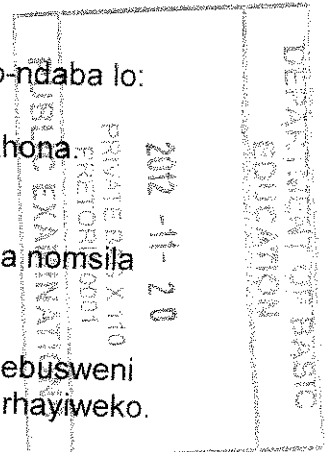 o-ndaba lo:
hona.
a nomsila
ebusweni
rhayiweko.
DEPARTMENT OF BASIC
EDUCATION
2012 -11- 20
PRIVATE BAG X 110
PRETORIA 0001
PUBLIC EXAMINATION